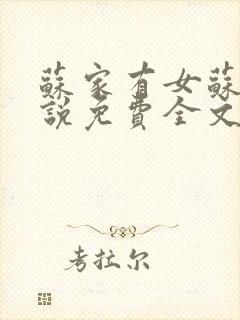 蘇家有女蘇
說免費全文
考拉尔